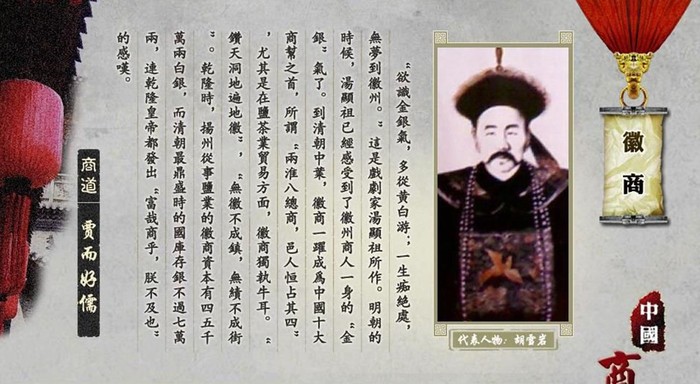 徽商
中國
商
代表人物:胡雪岩
“欲識金銀氣,多從黃白游;一生痴絕處,
無夢到徽州。”這是戲劇家湯顯祖所作。明朝的
時候,湯顯祖已經感受到了徽州商人一身的“金
銀”氣了。到清朝中葉,徽商一躍成爲中國十大
商幫之首,所謂“兩淮八總商,邑人恒占其四”
,尤其是在鹽茶業貿易方面,徽商獨執牛耳。“
鑽天洞地遍地徽”,“無徽不成鎮,無績不成街
”。乾隆時,揚州從事鹽業的徽商資本有四五千
萬兩白銀,而清朝最鼎盛時的國庫存銀不過七萬
兩,連乾隆皇帝都發出“富哉商乎,朕不及也”
的感嘆。
商道 賈而好儒